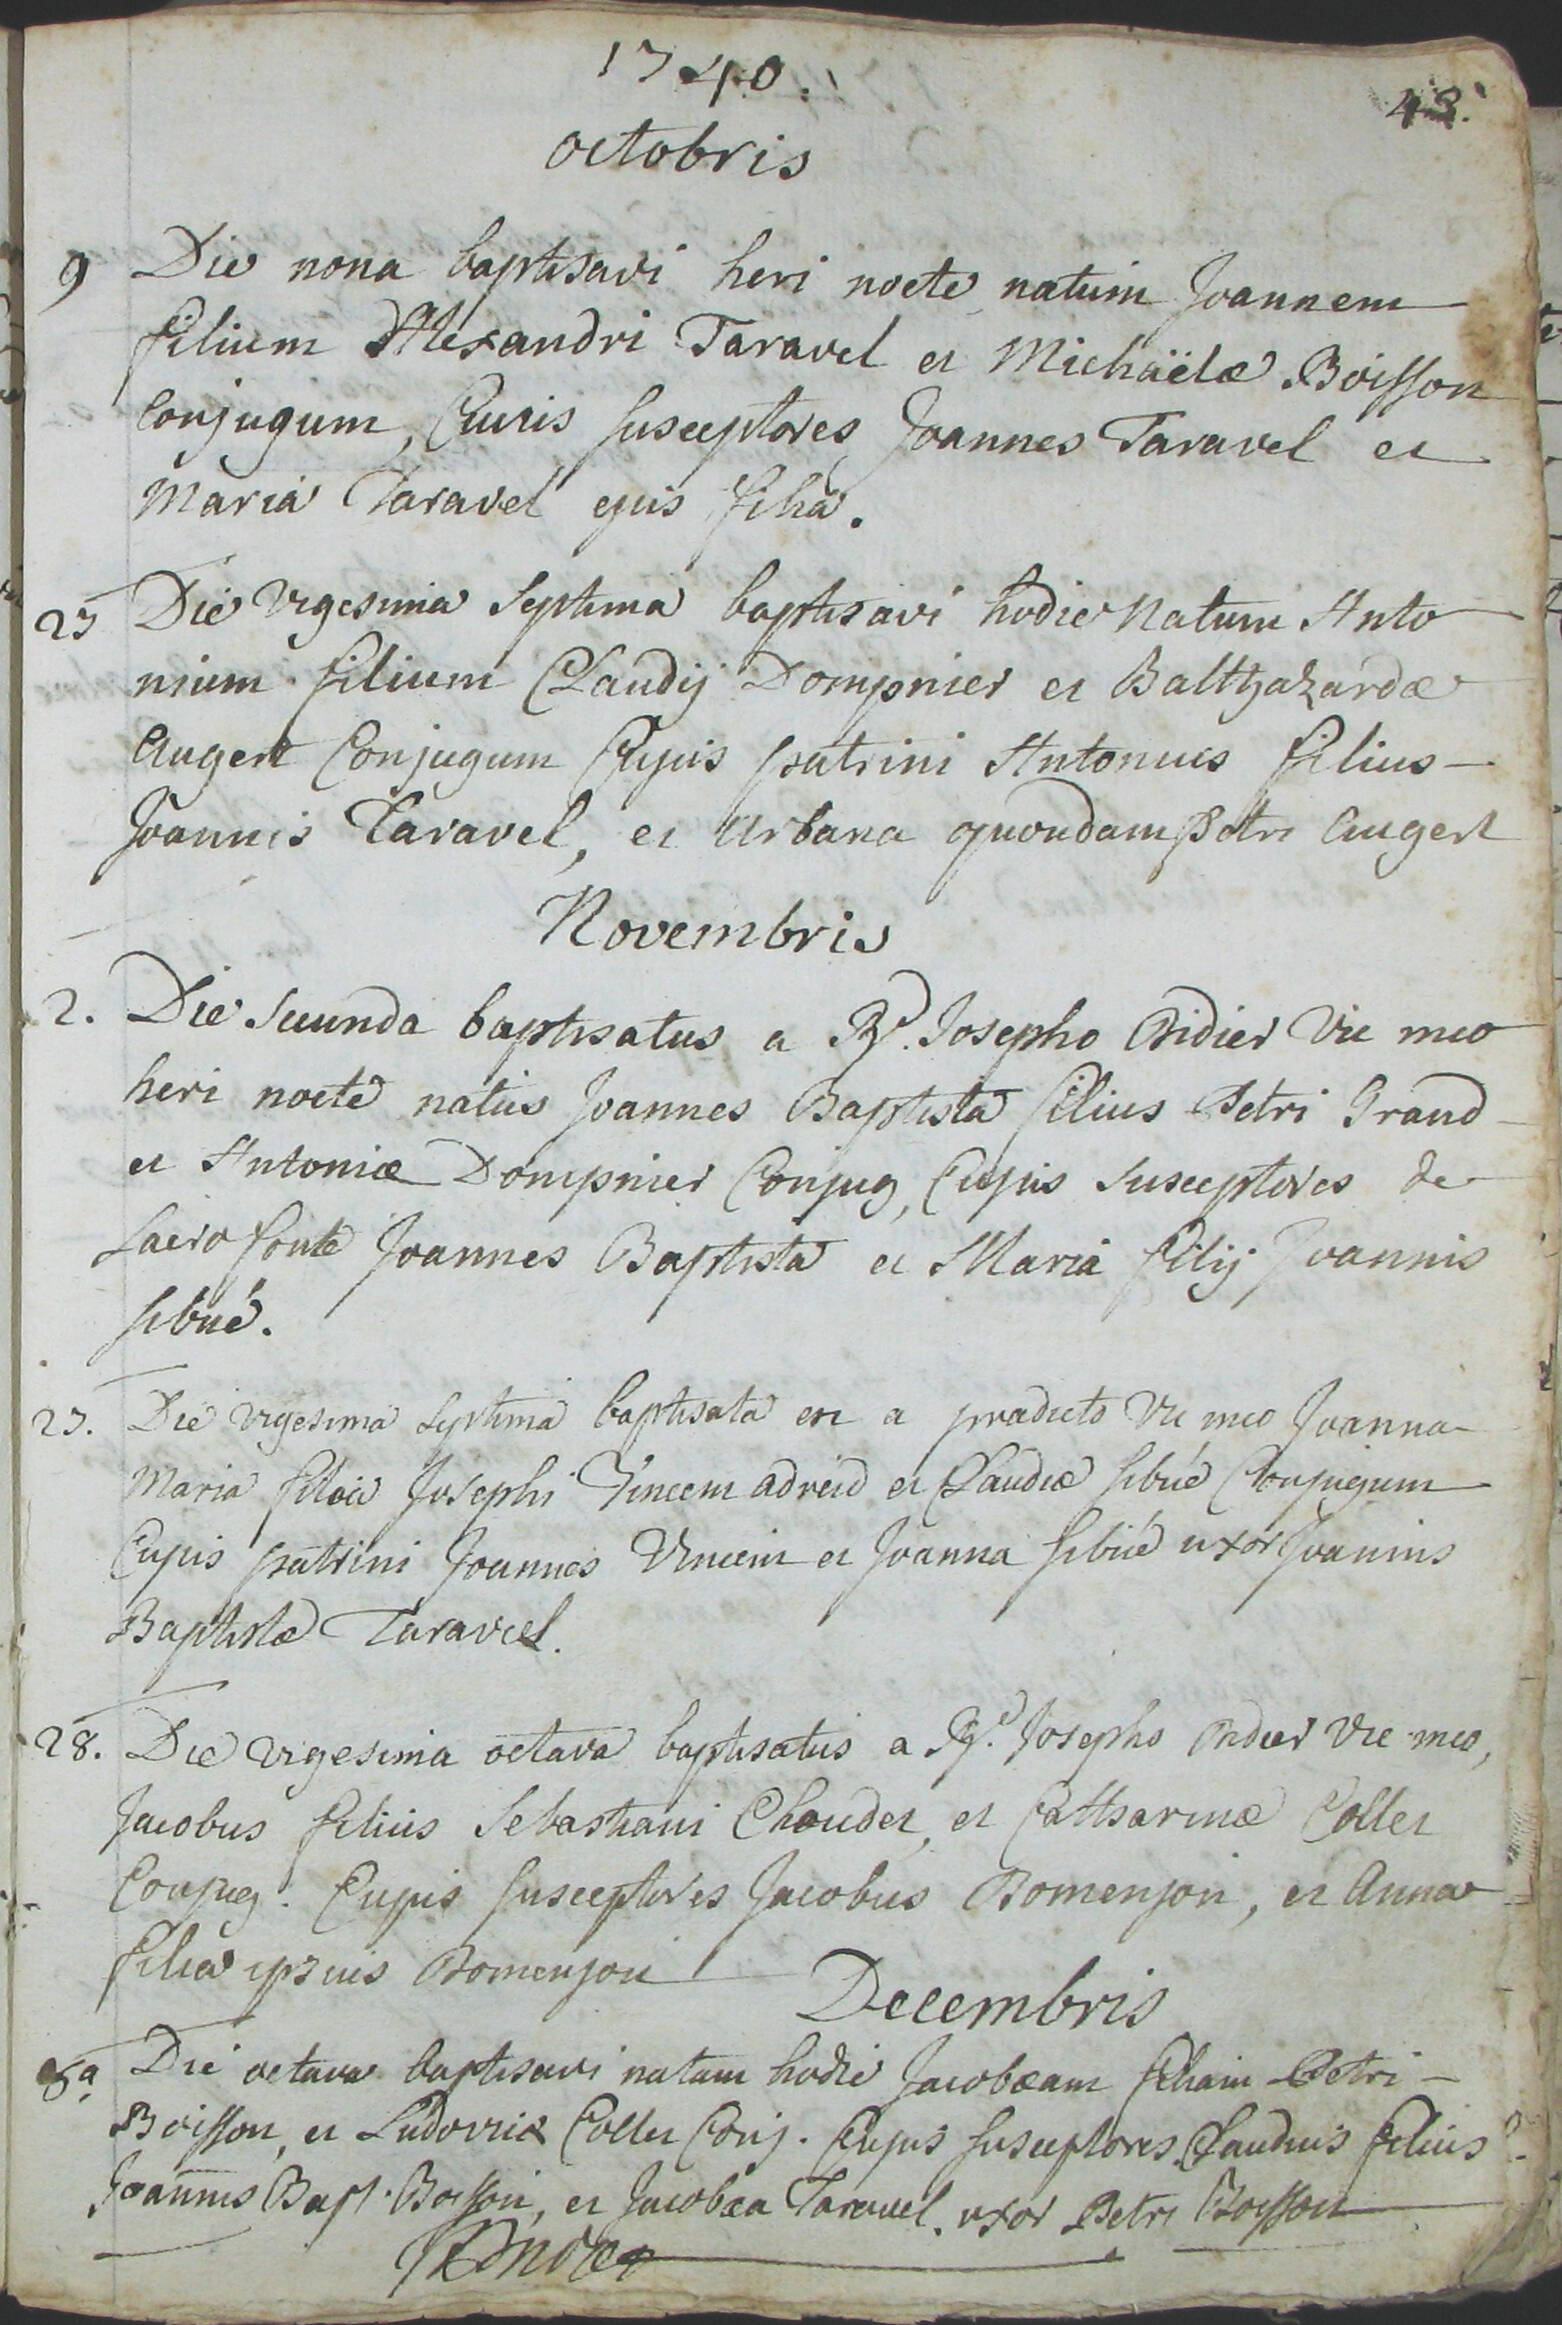 1740.
43.
octobris
9 Die nona baptisavi heri nocte natum Joannem
filium Alexandri Taravel et Michaëlæ Boisson
Conjugum, Cujus susceptores Joannes Taravel et
Maria Taravel ejus filia.
27 Die vigesima septima baptisavi hodie natum Anto
nium filium Claudij Dompnier et Balthazardæ
Augert Conjugum Cujus patrini Antonius filius
Joannis Taravel, et Urbana quondam Petri Augert
Novembris
2. Die secunda baptisatus a Rd. Josepho Didier Vic meo
heri nocte natus Joannes Baptista filius Petri Grand
et Antoniæ Dompnier Conjug, Cujus susceptores de
sacro fonte Joannes Baptista et Maria filij Joannis
sibué.
27. Die vigesima septima baptisata est a prædicto Vic meo Joanna
Maria filia Josephi Vincent adreid et Claudiæ sibué Conjugum
Cujus patrini Joannes Vincent et Joanna sibué uxor Joannis
Baptistæ Taravel.
28. Die vigesima octava baptisatus a Rd. Josepho Didier Vic meo,
Jacobus filius Sebastiani Choudet, et Catharinæ Collet
Conjug. Cujus susceptores Jacobus Bomenjon, et Anna
filia ipsius Bomenjon
Decembris
8a Die octava baptisavi natam hodie Jacobæam filiam Petri
Boisson, et Ludovicæ Collet Conj. Cujus susceptores Claudius filius
Joannis Bapt. Boisson, et Jacobæa Taravel uxor Petri Boisson